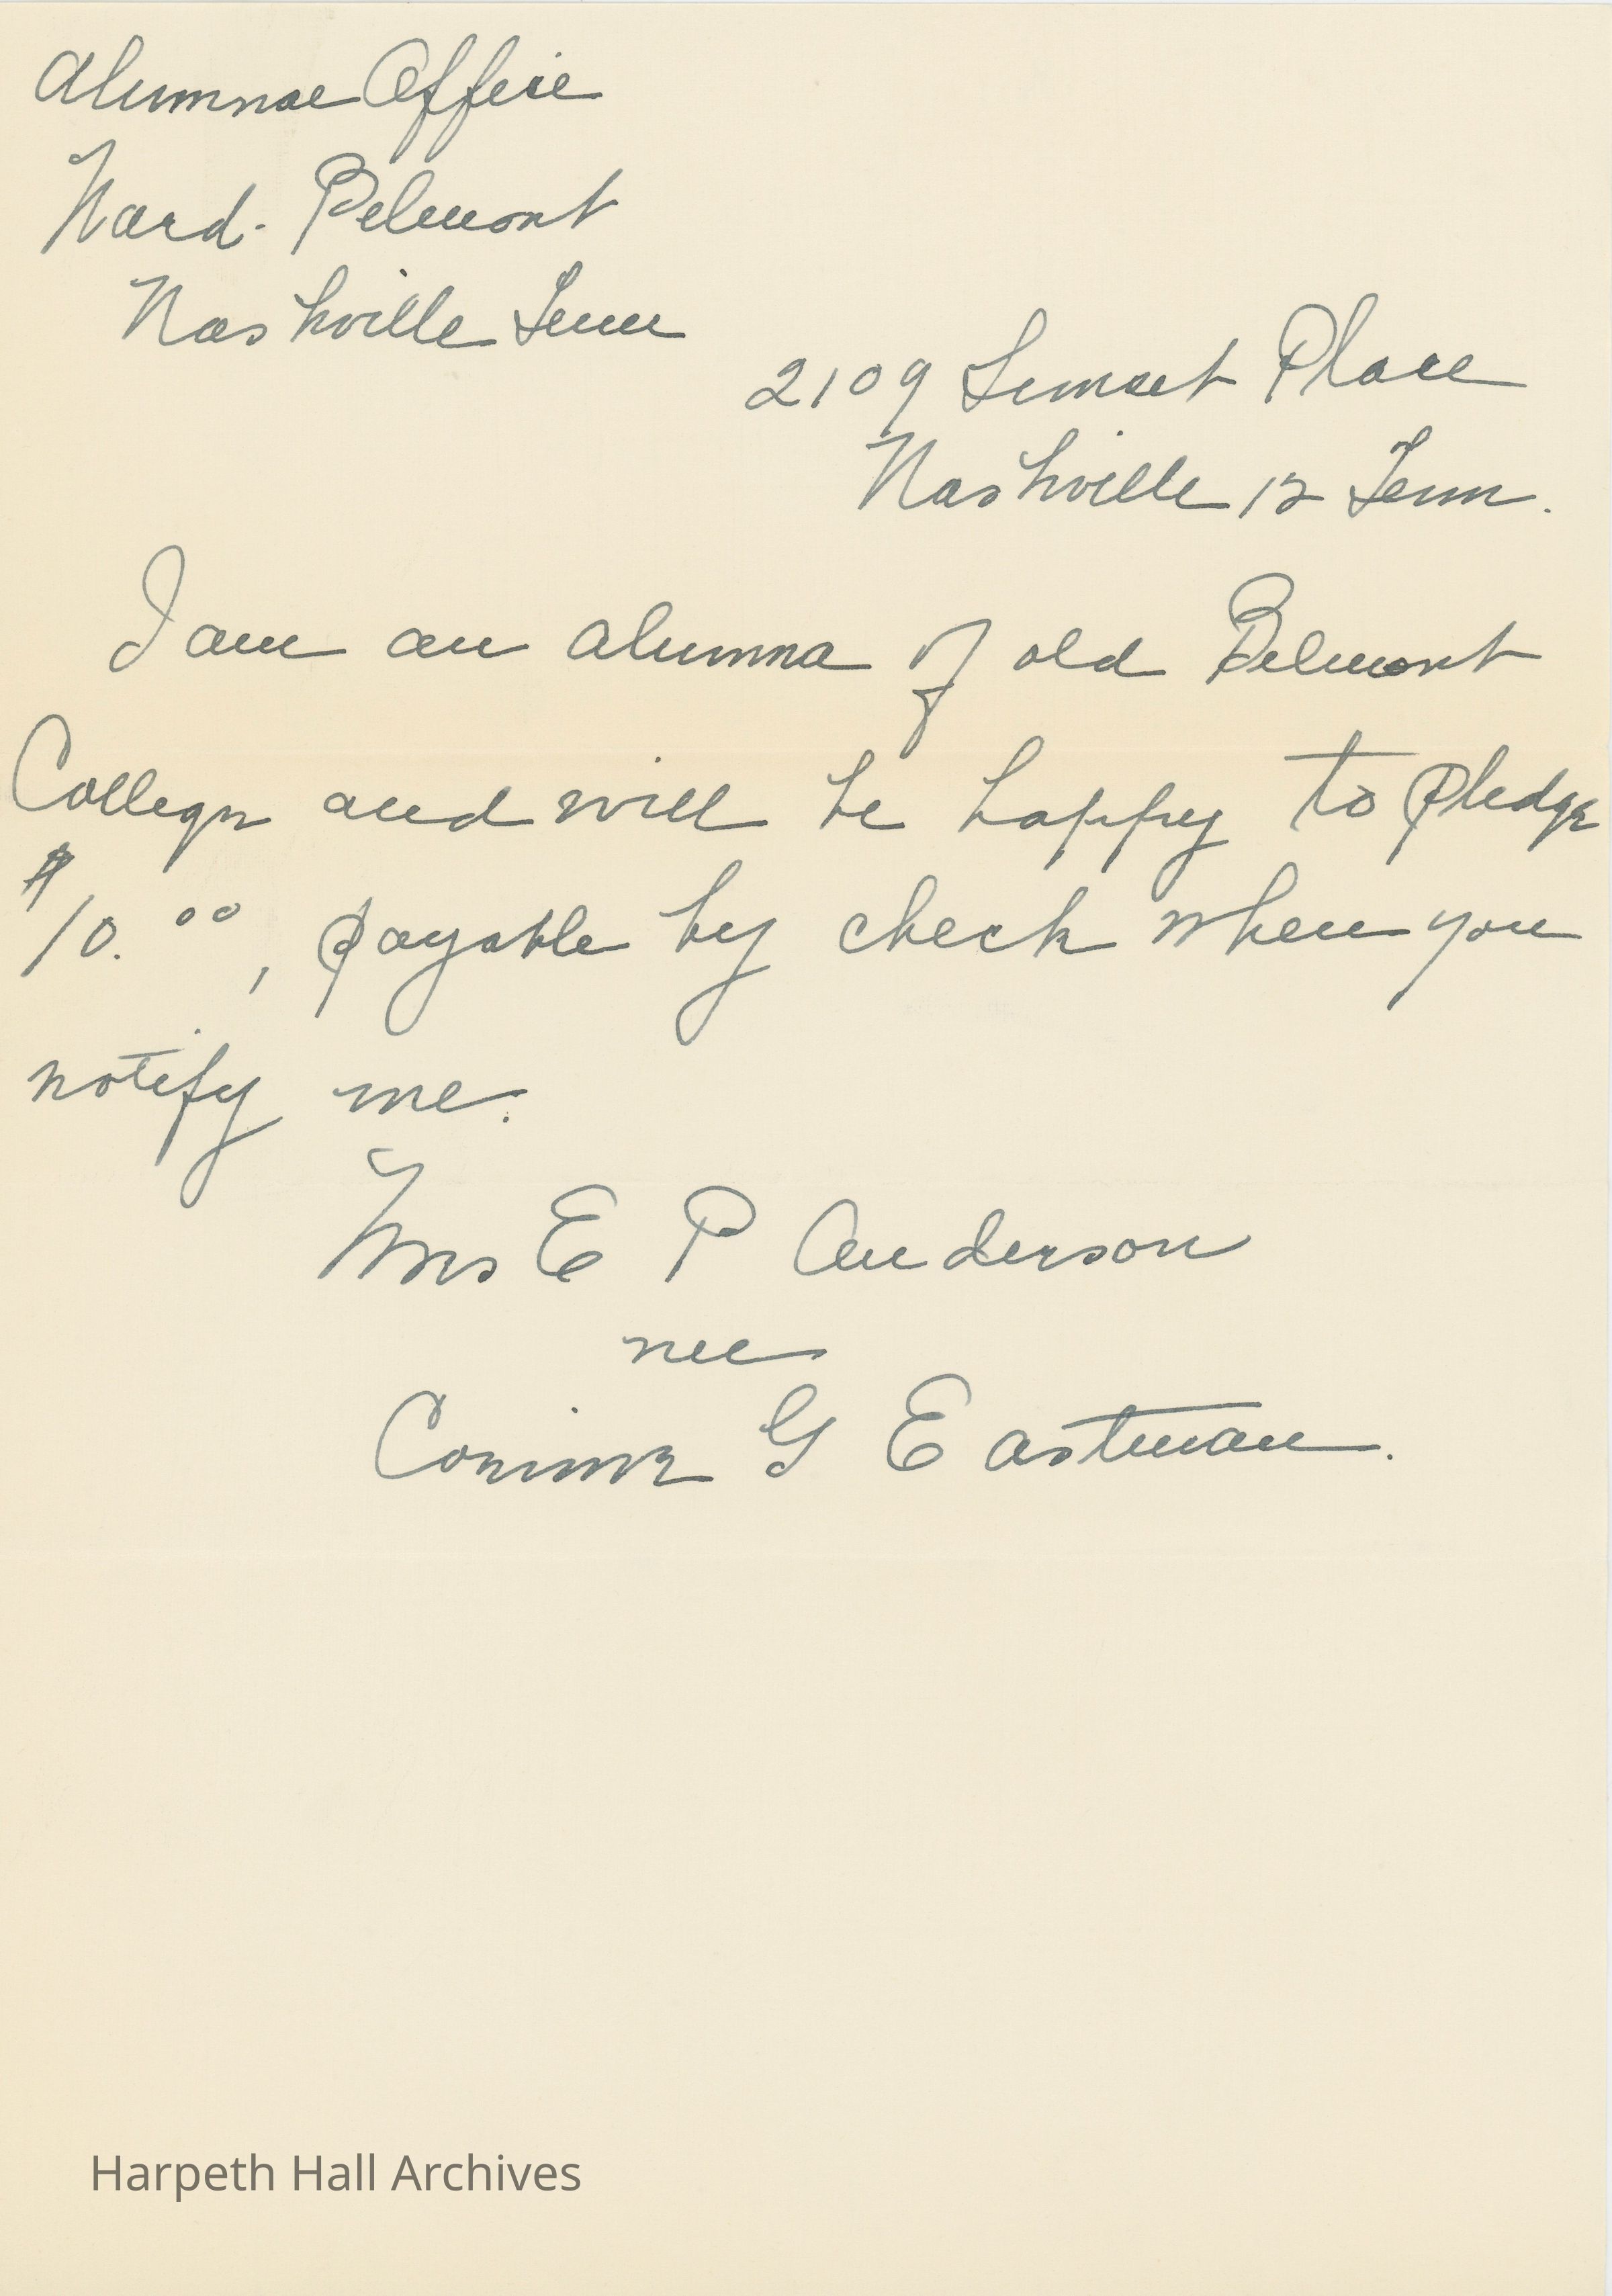 Alumnae Office
Ward-Belmont
Nashville Tenn
2109 Sunset Place
Nashville 12 Tenn.
I am an alumna of old Belmont
College and will be happy to pledge
$10.00, payable by check when you
notify me.
Mrs E P Anderson
nee
Corinne G Eastman.
Harpeth Hall Archives